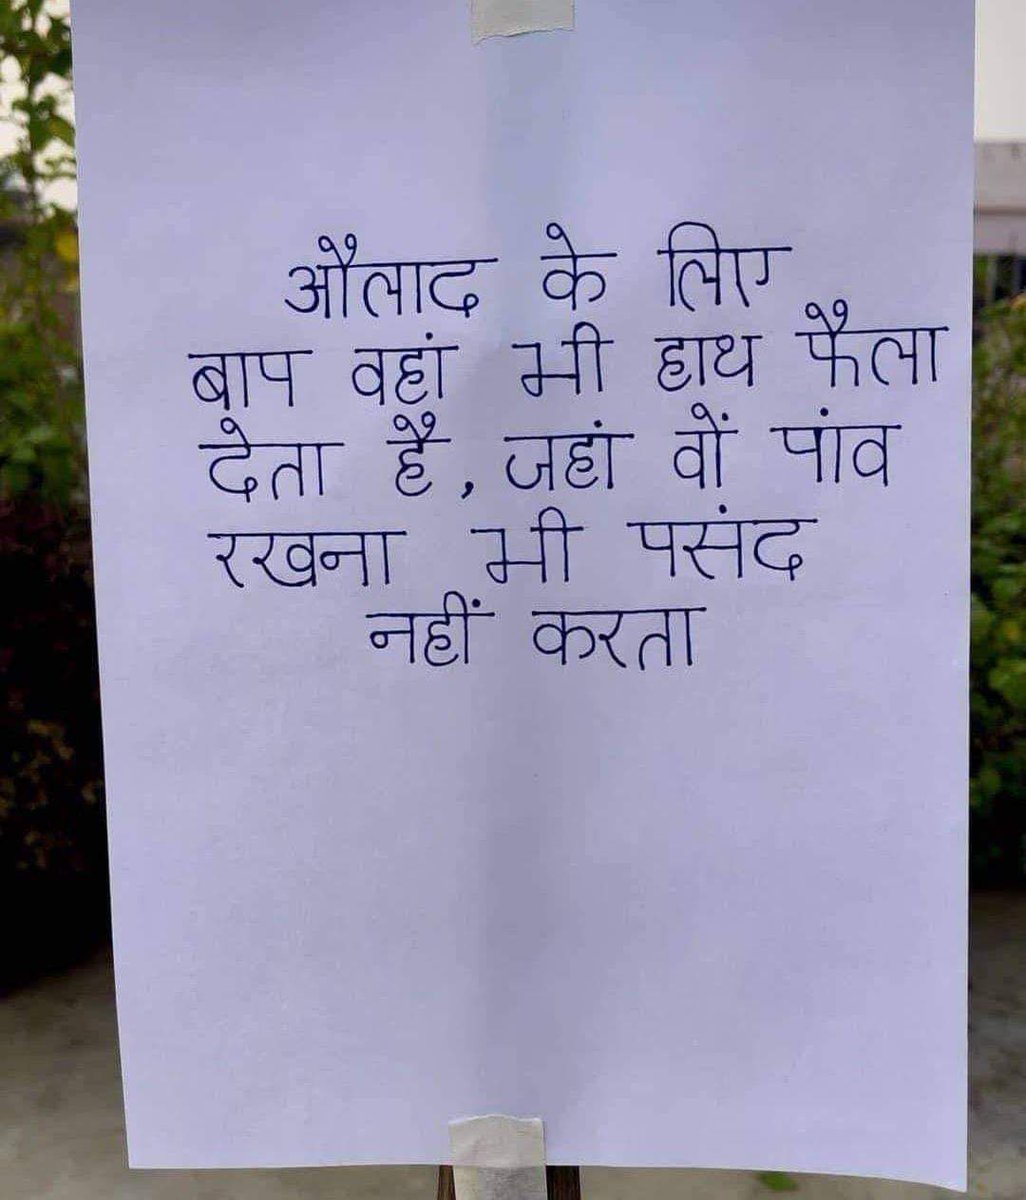 औलाद के लिए
बाप वहां भी हाथ फैला
देता है, जहां वों पांव
रखना भी पसंद
नहीं करता